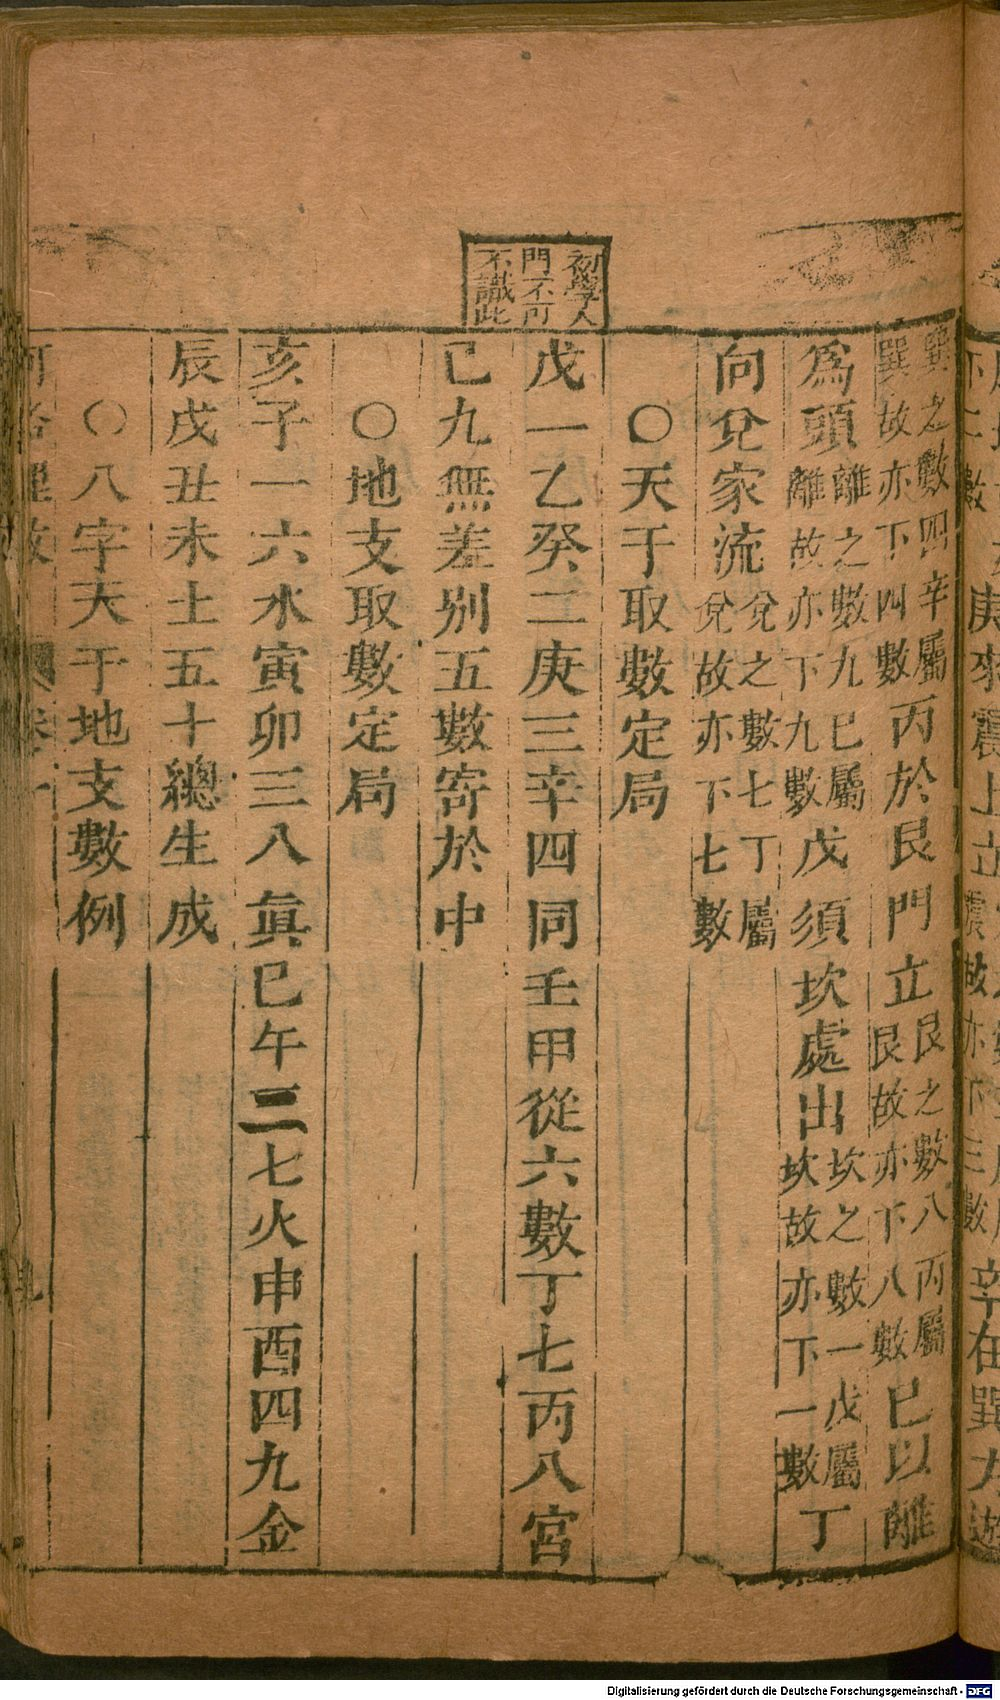 初學人
門不可
不識此
巽之數四辛屬巽故亦下四數丙於艮門立艮之數八丙屬艮故亦下八數巳以離
為頭離之數九巳屬離故亦下九數戊須坎處出坎之數一戊屬坎故亦下一數丁
向兌家流兌之數七丁屬兌故亦下七數
○天干取數定局
戊一乙癸二庚三辛四同壬甲從六數丁七丙八宮
己九無差别五數寄於中
○地支取數定局
亥子一六水寅卯三八真巳午二七火申酉四九金
辰戌丑未土五十總生成
○八字天干地支數例
Digitalisierung gefördert durch die Deutsche Forschungsgemeinschaft - DFG